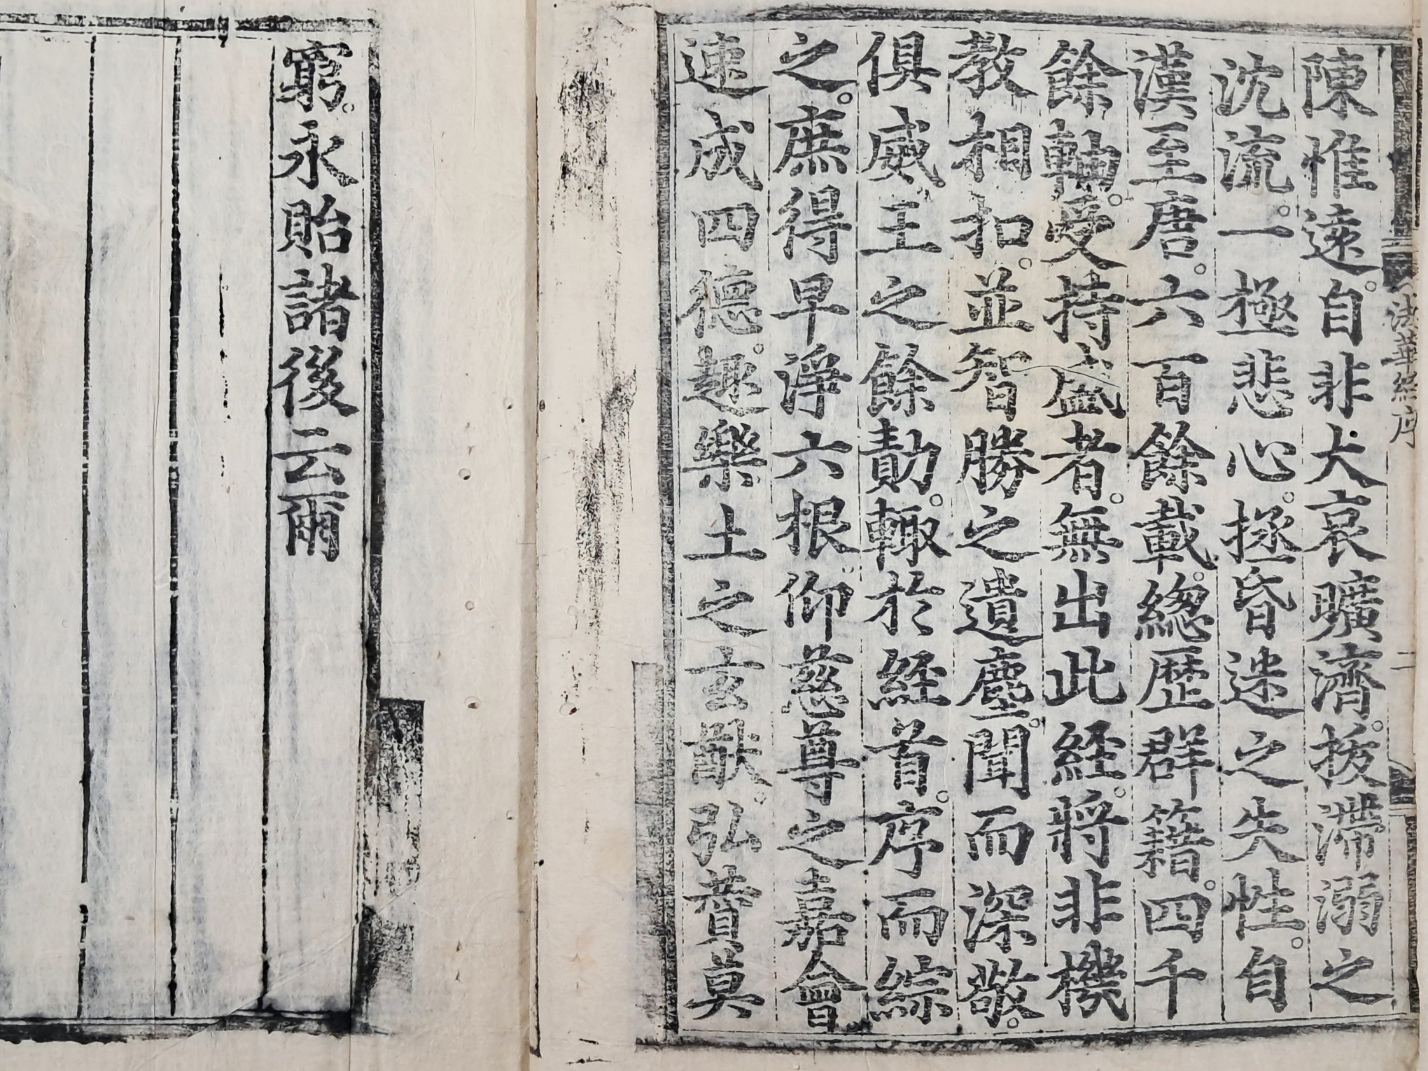 陳惟遠。自非大哀曠濟。拔滯溺之
沈流。一極悲心。拯昏迷之失性。自
漢至唐。六百餘載。緫歷群籍。四千
餘軸。受持盛者。無出此経。將非機
教相扣。並智勝之遺塵。聞而深敬。
俱威王之餘勣。輙於経首。序而綜
之。庶得早淨六根仰慈尊之嘉會
速成四德。趣樂土之玄猷。弘賛莫
窮。永貽諸後云爾
法華経序
二